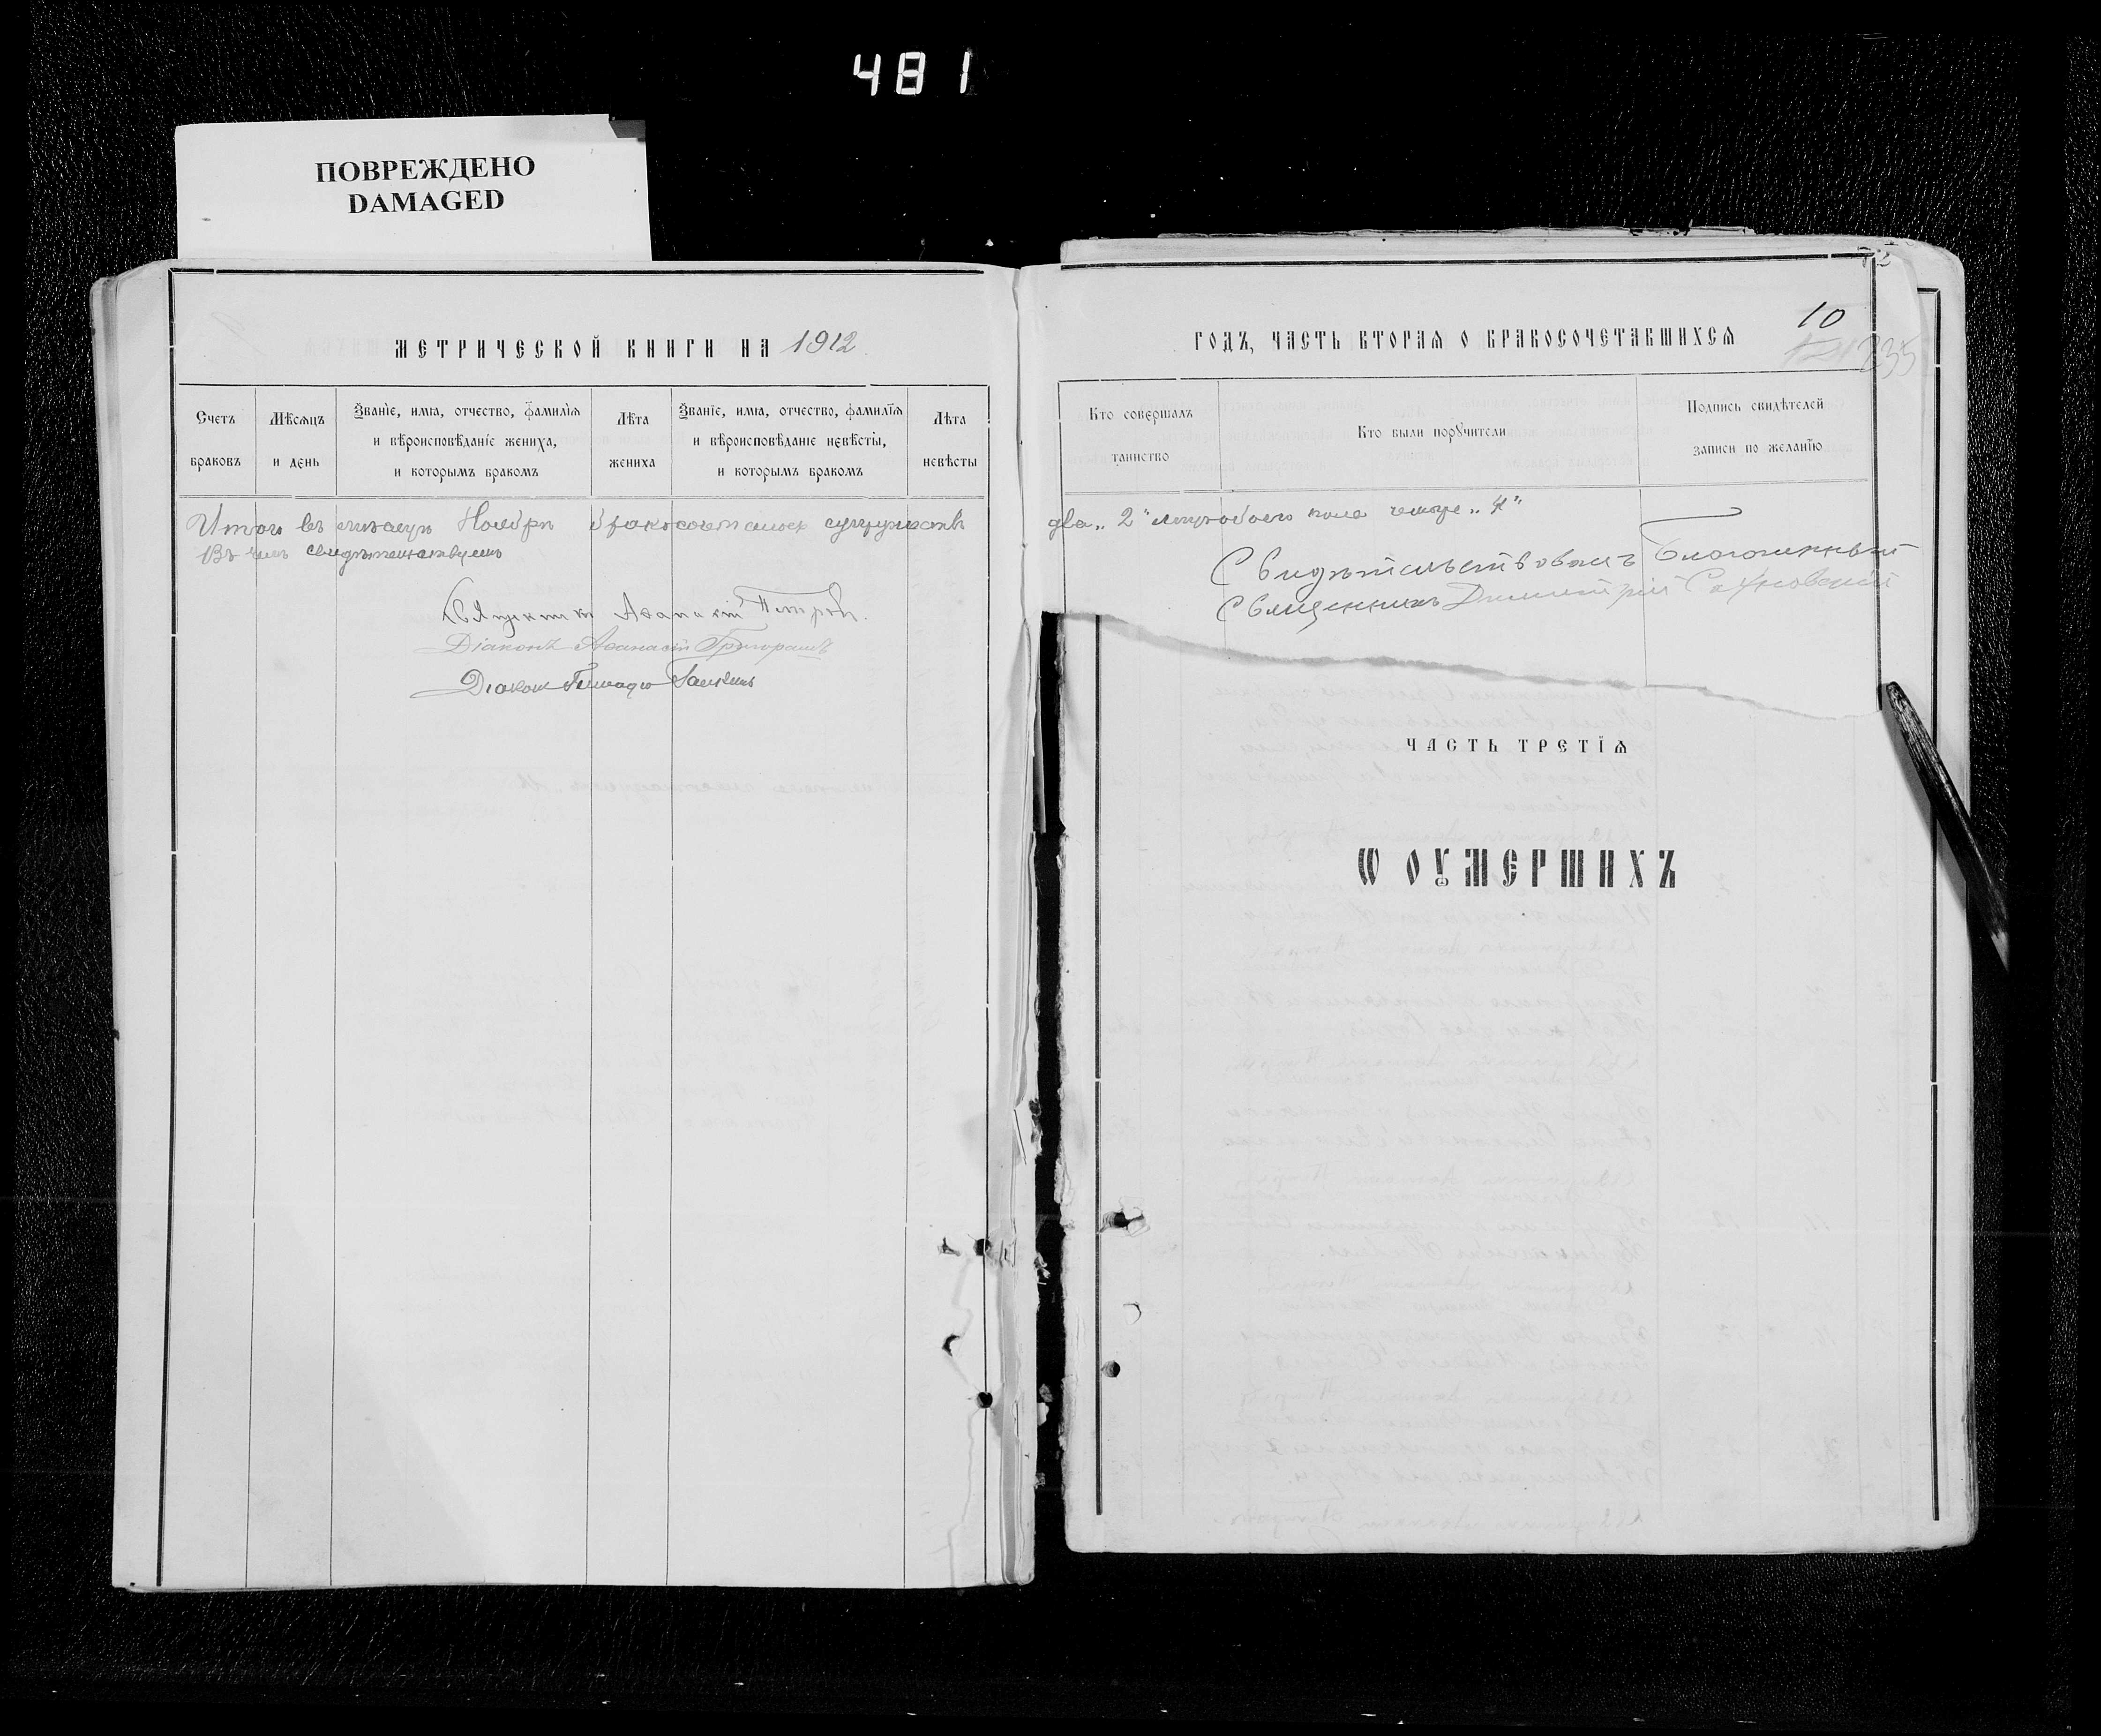 481
ПОВРЕЖДЕНО
DAMAGED
МЕТРИЧЕСКОЙ КНИГИ НА 1912
Счетъ браковъ
Мѣсяцъ и день
Званїе, имя, отчество, фамилїя и вѣроисповѣданїе жениха, и которымъ бракомъ
Лѣта жениха
Званїе, имя, отчество, фамилїя и вѣроисповѣданїе невѣсты, и которымъ бракомъ
Лѣта невѣсты
Итого въ мѣсяцѣ Ноябрѣ бракосочеталось супружествъ
Въ чемъ свидѣтельствуемъ
Священникъ Аѳанасій Петровъ.
Діаконъ Аѳанасій Григорашъ
Діаконъ
10
235
ГОДЪ, ЧАСТЬ ВТОРАЯ О БРАКОСОЧЕТАВШИХСЯ
Кто совершалъ таинство
Кто были порꙋчители
Подпись свидѣтелей записи по желанїю
два „2" обоего пола четыре „4"
Свидѣтельствовалъ Благочинный
Священникъ Димитрій
ЧАСТЬ ТРЕТЇЯ
Ѡ ОУМЕРШИХЪ